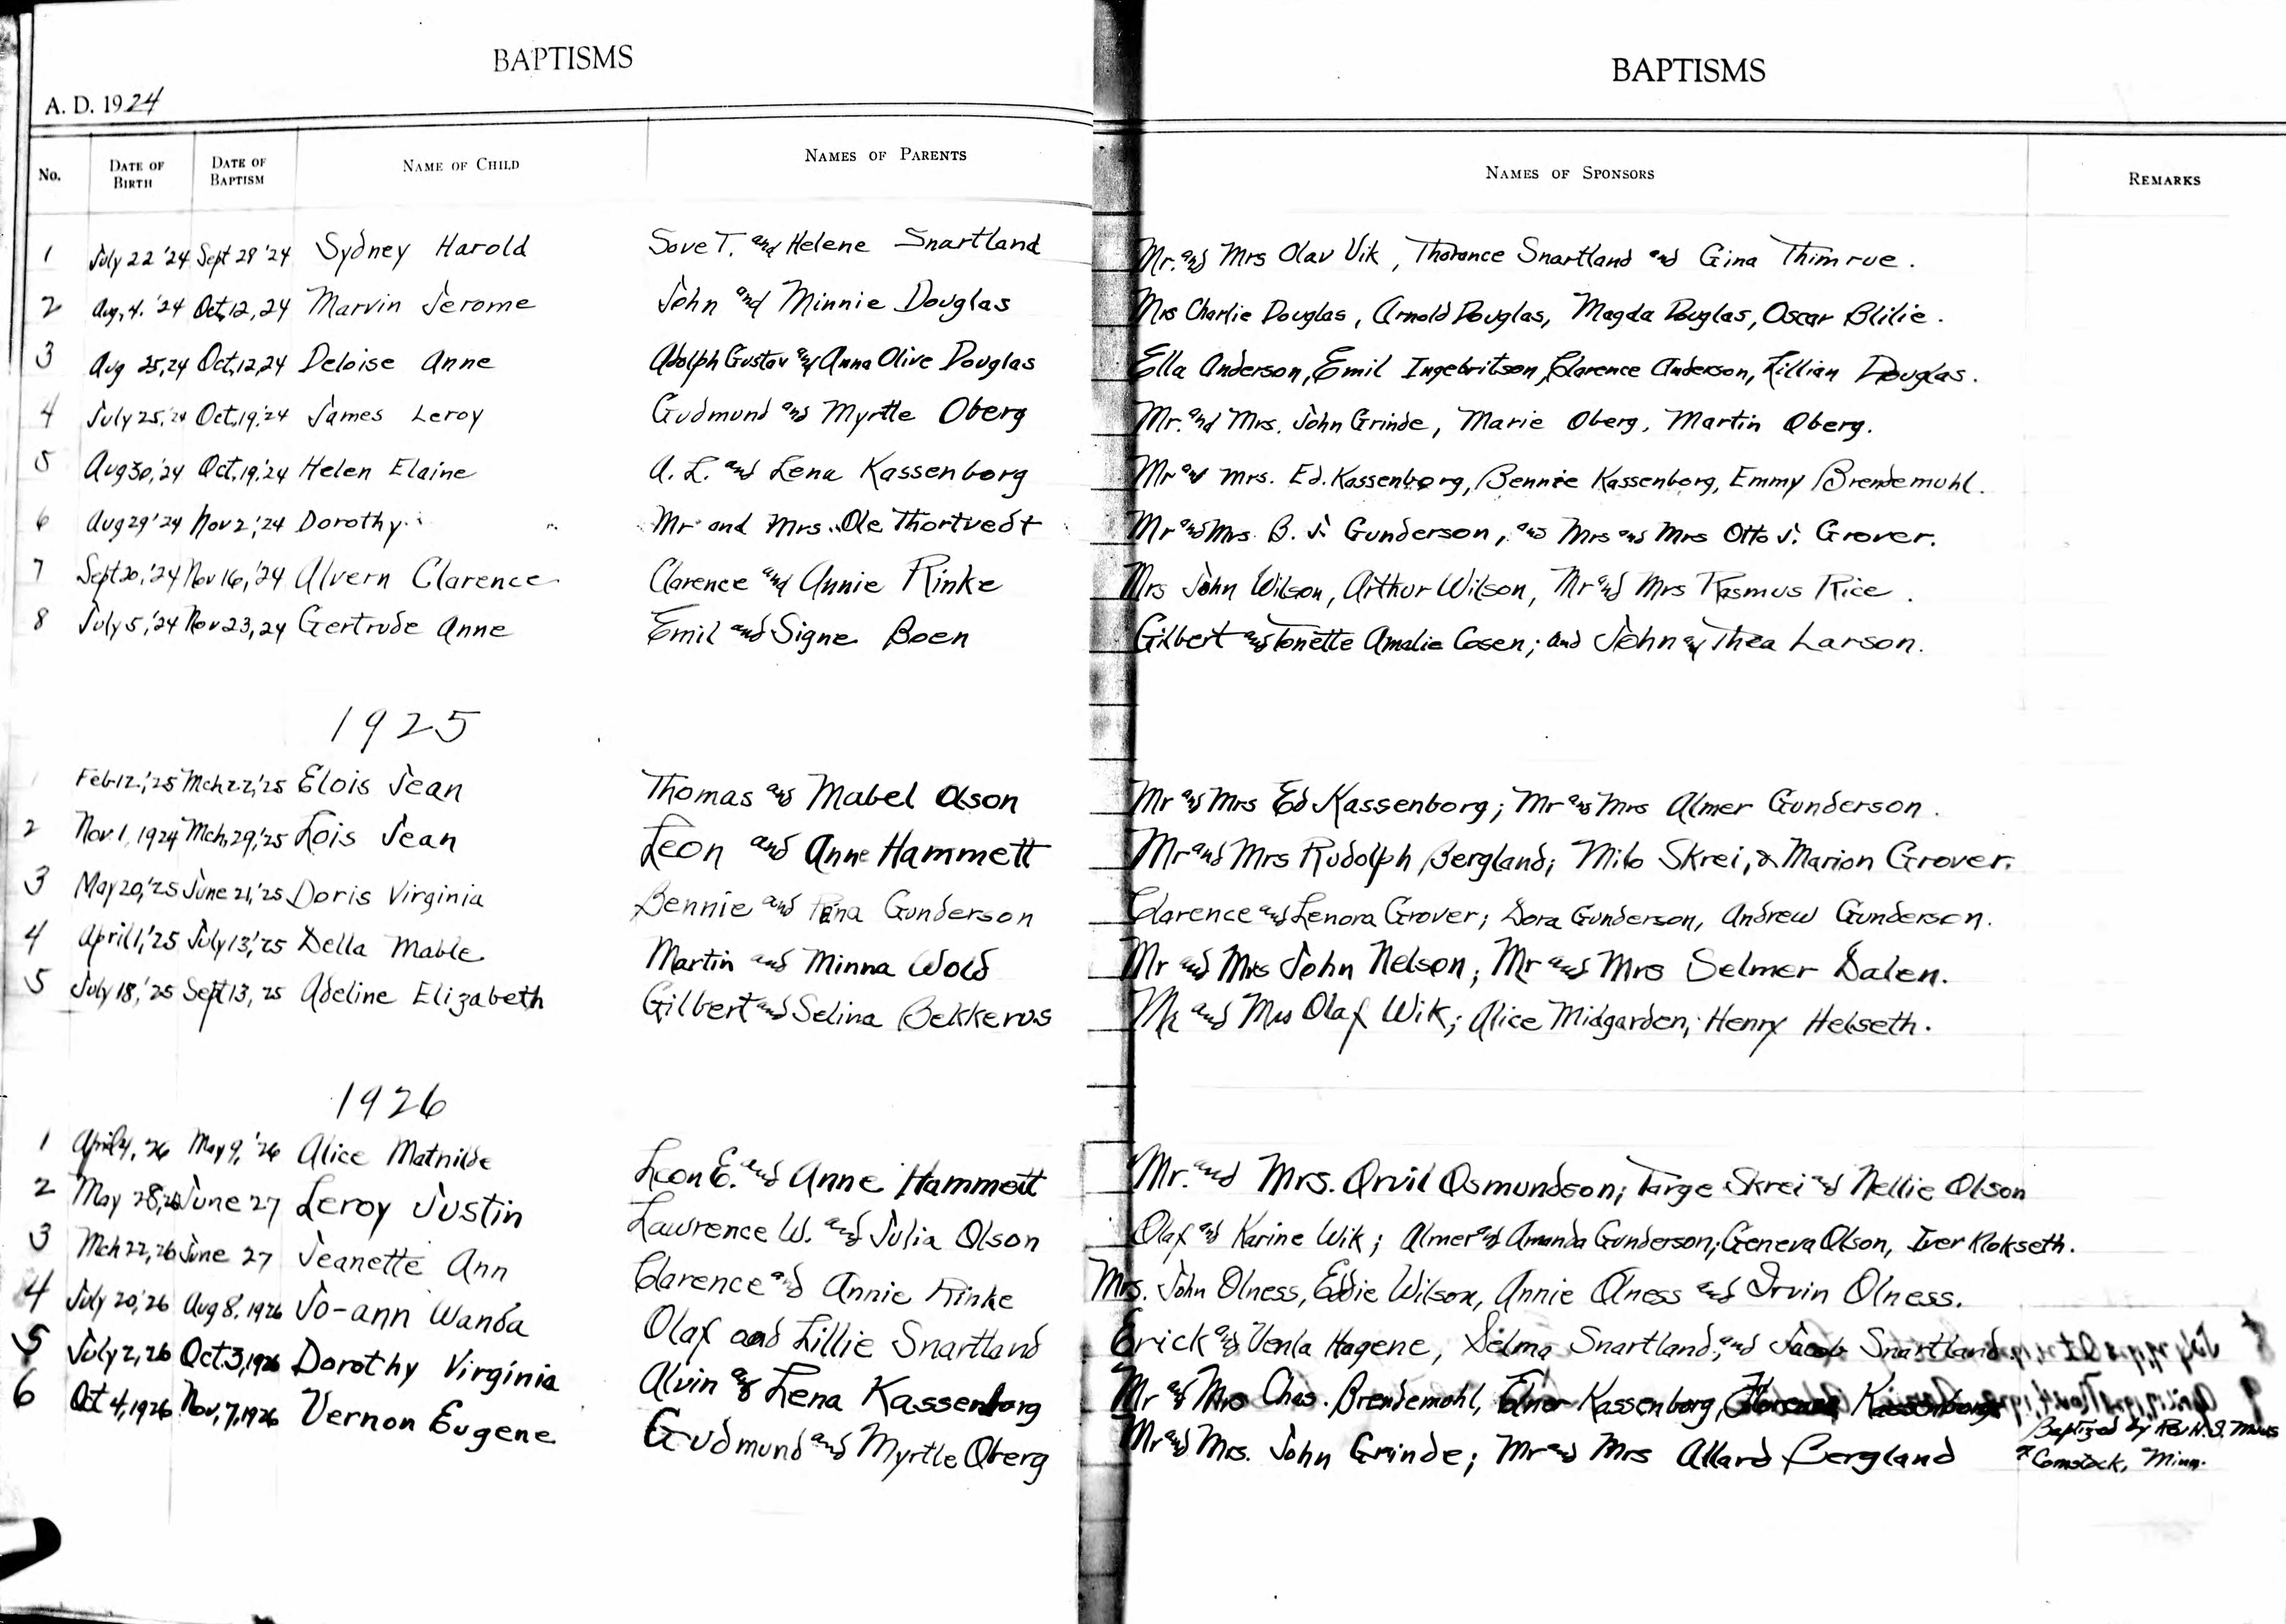 BAPTISMS
A. D. 1924
No. DATE OF BIRTH DATE OF BAPTISM NAME OF CHILD NAMES OF PARENTS
1 July 22 '24 Sept 28 '24 Sydney Harold Sove T. and Helene Snartland
2 Aug. 4. '24 Oct, 12, 24 Marvin Jerome John and Minnie Douglas
3 Aug 25, 24 Oct, 12, 24 Deloise Anne Adolph Gustav and Anna Olive Douglas
4 July 25, '24 Oct, 19, '24 James Leroy Gudmund and Myrtle Oberg
5 Aug 30, '24 Oct, 19, '24 Helen Elaine A. L. and Lena Kassenborg
6 Aug 29 '24 Nov 2, '24 Dorothy Mr and Mrs. Ole Thortvedt
7 Sept 20, '24 Nov 16, '24 Alvern Clarence Clarence and Annie Rinke
8 July 5, '24 Nov 23, 24 Gertrude Anne Emil and Signe Boen
1925
1 Feb 12, '25 Mch 22, '25 Elois Jean Thomas and Mabel Olson
2 Nov. 1, 1924 Mch, 29, '25 Lois Jean Leon and Anne Hammett
3 May 20, '25 June 21, '25 Doris Virginia Bennie and Gunderson
4 April 1, '25 July 13, '25 Della Mable Martin and Minna Wold
5 July 18, '25 Sept 13, 25 Adeline Elizabeth Gilbert and Selina Bekkerus
1926
1 April 4, 26 May 9, '26 Alice Mathilde Leon E. and Anne Hammett
2 May 28, 26 June 27 Leroy Justin Lawrence W. and Julia Olson
3 Mch 22, 26 June 27 Jeanette Ann Clarence and Annie Rinke
4 July 20, '26 Aug 8, 1926 Jo-ann Wanda Olaf and Lillie Snartland
5 July 2, 26 Oct. 3, 1926 Dorothy Virginia Alvin and Lena Kassenborg
6 Oct 4, 1926 Nov, 7, 1926 Vernon Eugene Gudmund and Myrtle Oberg
BAPTISMS
NAMES OF SPONSORS REMARKS
Mr. and Mrs Olav Vik, Thorance Snartland and Gina Thimrue.
Mrs Charlie Douglas, Arnold Douglas, Magda Douglas, Oscar Blilie.
Ella Anderson, Emil Ingebritson, Clarence Anderson, Lillian Douglas.
Mr. and Mrs. John Grinde, Marie Oberg, Martin Oberg.
Mr and Mrs. Ed. Kassenborg, Bennie Kassenborg, Emmy Brendemuhl.
Mr and Mrs. B. J. Gunderson, and Mrs and Mrs Otto J. Grover.
Mrs John Wilson, Arthur Wilson, Mr and Mrs Rasmus Rice.
Gilbert and Tonette Amalie Cosen; and John and Thea Larson.
Mr and Mrs Ed Kassenborg; Mr and Mrs Almer Gunderson.
Mr and Mrs Rudolph Bergland; Milo Skrei, & Marion Grover.
Clarence and Lenora Grover; Dora Gunderson, Andrew Gunderson.
Mr and Mrs John Nelson; Mr and Mrs Selmer Dalen.
Mr and Mrs Olaf Wik; Alice Midgarden; Henry Helseth.
Mr. and Mrs. Orvil Osmundson; Targe Skrei and Nellie Olson
Olaf and Karine Wik; Almer and Amanda Gunderson; Geneva Olson, Iver Klokseth.
Mrs. John Olness, Eddie Wilson, Annie Olness and Irvin Olness.
Erick and Venla Hagene, Selma Snartland, and Jacob Snartland.
Mr & Mrs Chas. Brendemohl, Elner Kassenborg, Florence Kassenborg
Mr and Mrs. John Grinde; Mr and Mrs Allard Bergland Baptized by Rev. H. S.
Comstock, Minn.